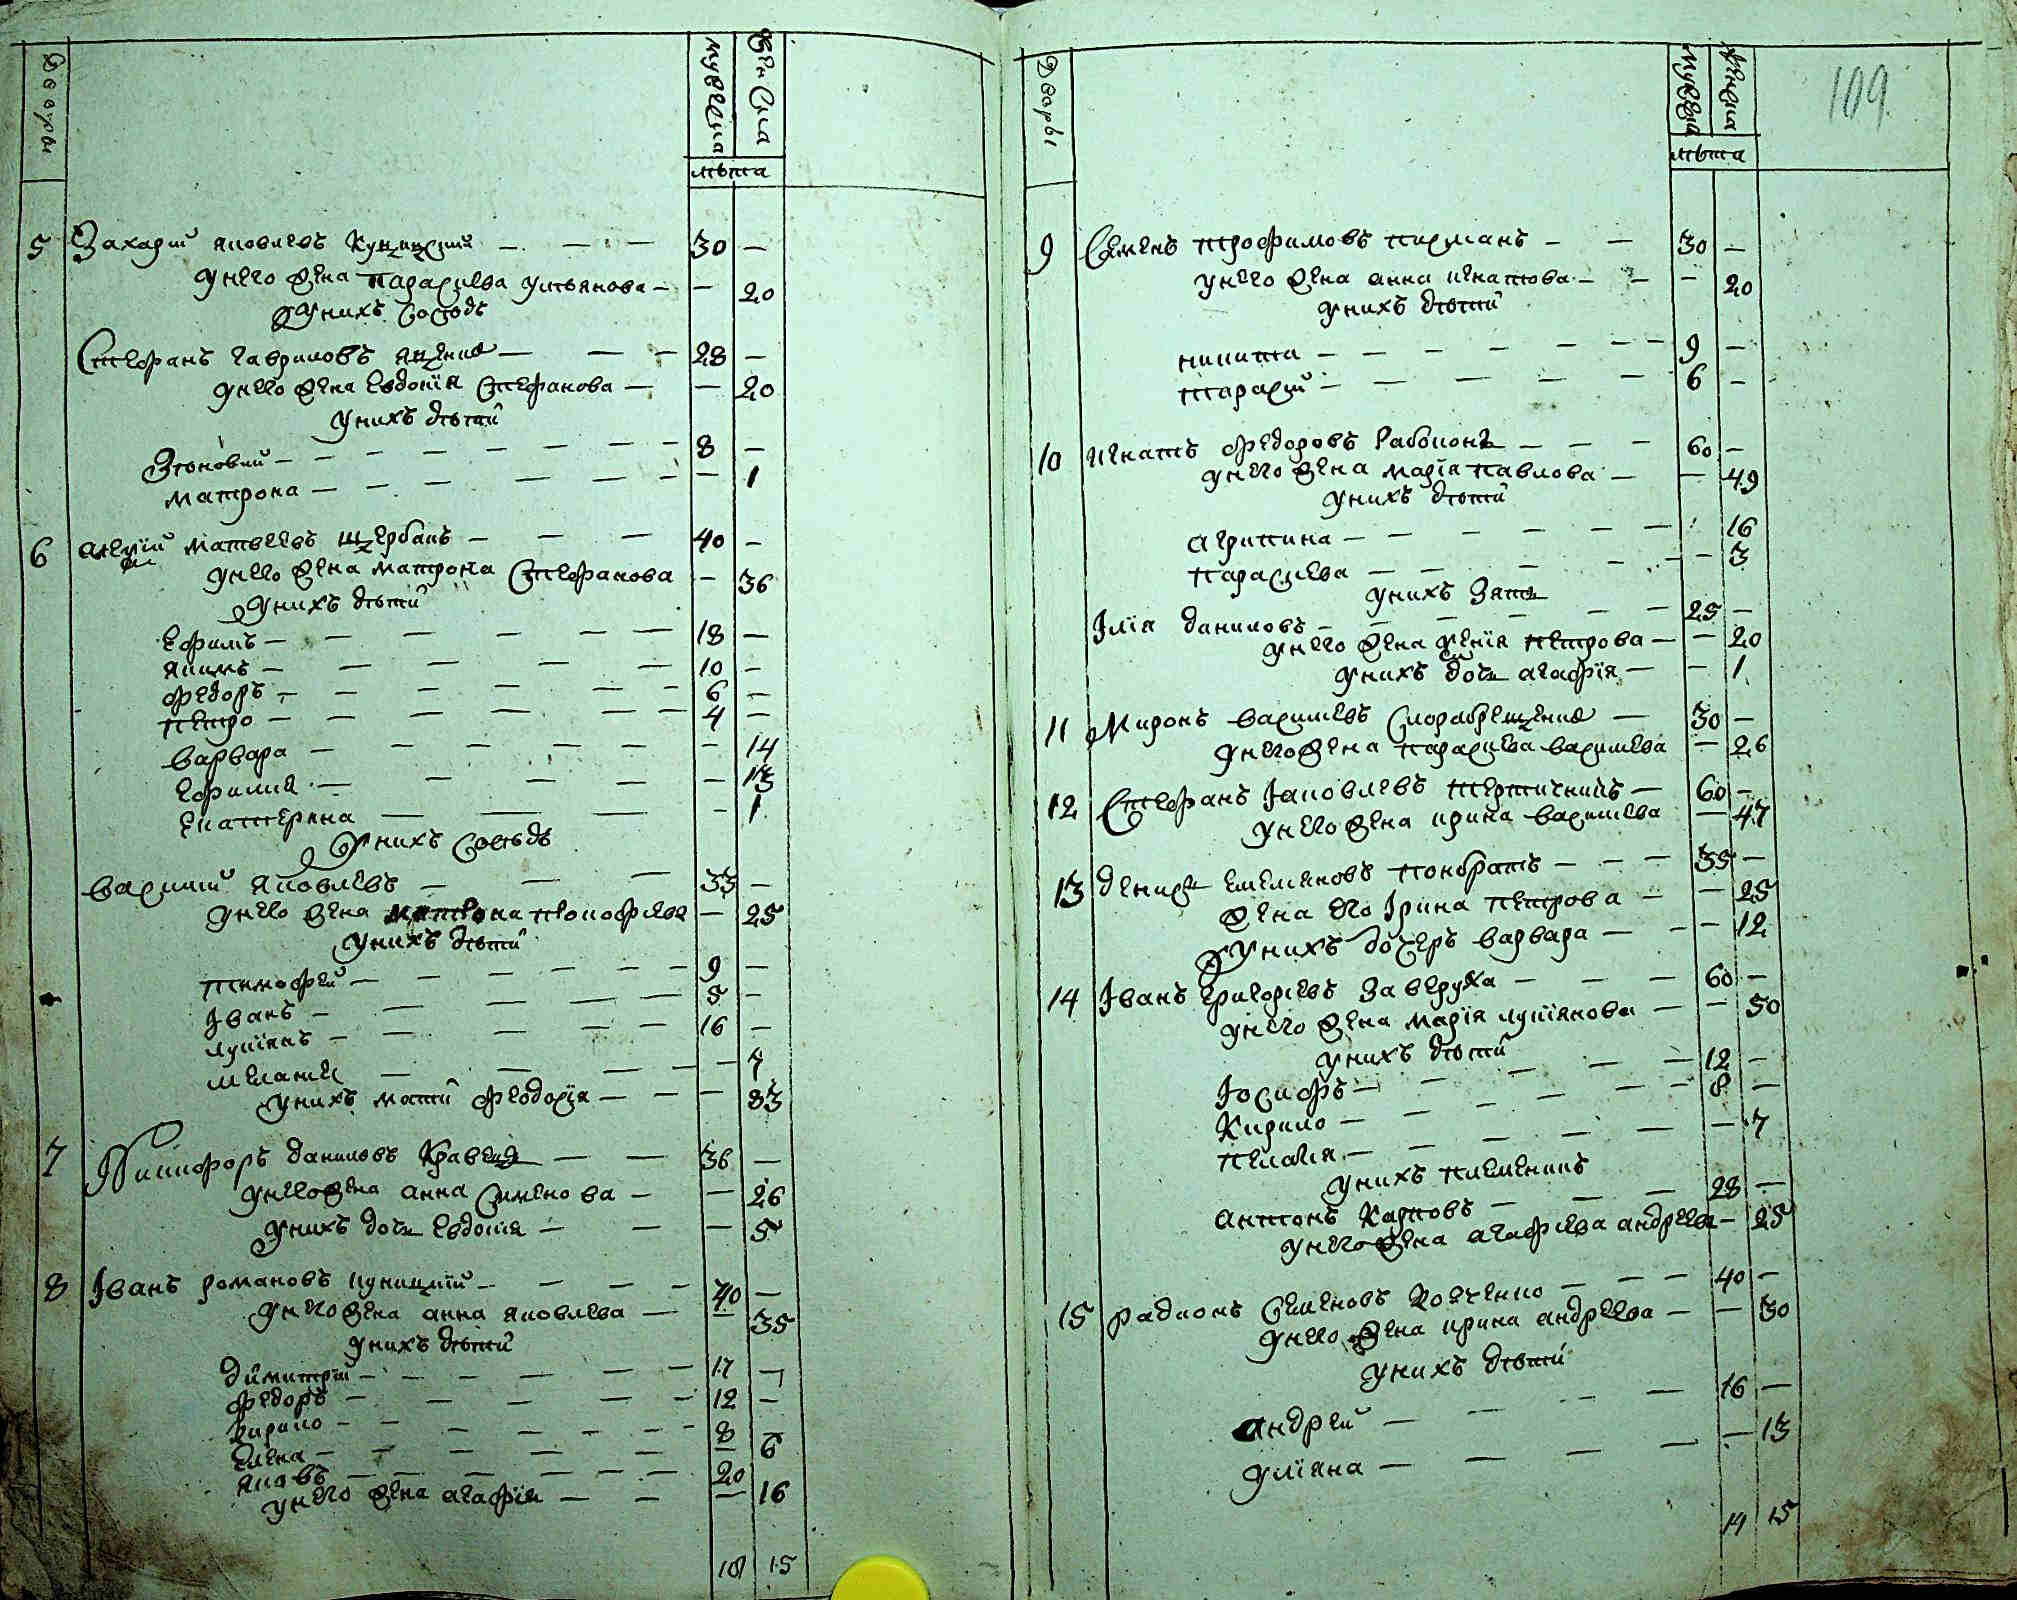 Дворы
мужеска
женска
лѣта
5 Захарий яковлевъ Куницкий — — — 30 —
у него жена параскева улянова — — 20
у нихъ сосѣдъ
Стефанъ гавриловъ яценко — — — 28 —
у него жена евдокїя Стефанова — — 20
у нихъ дѣти
Зѣновий — — — — — — 8 —
матрона — — — — — — — 1
6 алексїй матвѣевъ щербакъ — — — 40 —
у него жена матрона Стефанова — 36
у нихъ дѣти
ефимъ — — — — — — 18 —
якимъ — — — — — 10 —
федоръ — — — — — — 6 —
петро — — — — — — 4 —
варвара — — — — — — 14
ефимия — — — — — 13
екатерина — — — — 1
у нихъ сосѣдъ
василий яковлевъ — — — 33 —
у него жена прокофиева — 25
у нихъ дѣти
тимофей — — — — — — 9 —
Іванъ — — — — — 5 —
лукїянъ — — — — — 16 —
— — — — — 7
у нихъ мати феодосїя — — — 83
7 Никифоръ даниловъ Кравецъ — — — 36 —
у него жена анна Семенова — — 26
у нихъ дочь евдокия — — — 5
8 Іванъ романовъ куницкїй — — — — 40 —
у него жена анна яковлева — — 35
у нихъ дѣти
димитрїй — — — — — 17 —
федоръ — — — — — 12 —
кирило — — — — — — 8 —
елена — — — — — — 6
яковъ — — — — — — 20
у него жена агафїя — — — 16
18 15
109
Дворы
мужеска
женска
лѣта
9 Семенъ трофимовъ — — 30 —
у него жена анна игнатова — — — 20
у нихъ дѣти
никита — — — — — — — 9 —
тарасий — — — — — — 6 —
10 игнатъ федоровъ — — — 60 —
у него жена марїя павлова — — 49
у нихъ дѣти
агрипина — — — — — — 16
параскева — — — — — — 3
у нихъ зять
Ілїя даниловъ — — — — — 25 —
у него жена ксенїя петрова — — 20
у нихъ дочь агафїя — — 1
11 Миронъ василевъ — 30 —
у него жена параскева василева — 26
12 Стефанъ Іаковлевъ — 60 —
у него жена ирина василева — 47
13 денисъ емеляновъ понбратъ — — — 35 —
жена его Ірина петрова — — 25
у нихъ дочеръ варвара — — — 12
14 Іванъ григориевъ Заверуха — — — 60 —
у него жена марїя лукїянова — — 50
у нихъ дѣти
Іосифъ — — — — — 12 —
Кирило — — — — — — 8 —
пелагия — — — — — — 7
у нихъ племеникъ
антонъ карповъ — — — 28 —
у него жена агафиева андреева — 25
15 радионъ Семеновъ — — — 40 —
у него жена ирина андреева — — 30
у нихъ дѣти
андрей — — — — 16 —
улїяна — — — — — 13
14 15